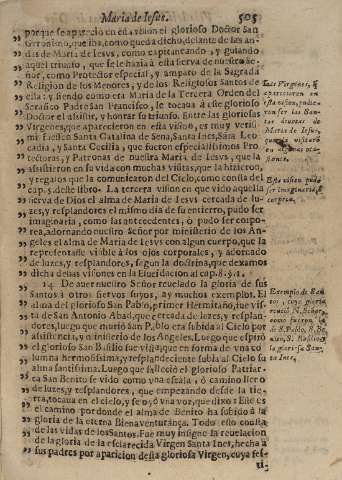 Maria de Iesus. 505
porque se aparecio en esta vision el glorioso Doctor San
Geronimo, que iba, como queda dicho, delante de las an-
das de Maria de Iesvs, como capitaneando, y guiando
aquel triunfo, que se le hazia à esta sierva de nuestro Se-
ñor, como Protector especial, y amparo de la Sagrada
Religion de los Menores, y de los Religiosos Santos de
ella: y siendo como era Maria de la Tercera Orden del
Serafico Padre San Francisco, le tocava à este glorioso
Doctor el assistir, y honrar su triunfo. Entre las gloriosas
Virgenes, que aparecieron en esta vision, es muy verisi-
mil fuessen Santa Catalina de Sena, Santa Ines, Santa Leo-
cadia, y Santa Cecilia, que fueron especialissimas Pro-
tectoras, y Patronas de nuestra Maria de Iesvs, que la
assistieron en su vida con muchas visitas, que la hizieron,
y regalos que la comunicaron del Cielo, como consta del
cap. 5. deste libro. La tercera vision en que vido aquella
sierva de Dios el alma de Maria de Iesvs cercada de lu-
zes, y resplandores el mismo dia de su entierro, pudo ser
imaginaria, como las antecedentes, ò pudo ser corpo-
rea, adornando nuestro Señor por ministerio de los An-
geles el alma de Maria de Iesvs con algun cuerpo, que la
representasse visible à los ojos corporales, y adornado
de luzes, y resplandores, segun la doctrina, que dexamos
dicha destas visiones en la Elucidacion al cap. 8. 9. 1.
14. De aver nuestro Señor revelado la gloria de sus
Santos à otros siervos suyos, ay muchos exemplos. El
alma del glorioso San Pablo, primer Hermitaño, fue vis-
ta de San Antonio Abad, que cercada de luzes, y resplan-
dores, luego que murió San Pablo era subida al Cielo por
assistencia, y ministerio de los Angeles. Luego que espirò
el glorioso San Basilio fue vista, que en forma de vna co-
lumna hermosissima, y resplandeciente subia al Cielo su
alma santissima. Luego que falleciò el glorioso Patriar-
ca San Benito se vido como vna escala, ò camino lleno
de luzes, y resplandores, que empezando desde la tie-
rra, tocava en el cielo, y se oyò vna voz, que dixo: Este es
el camino por donde el alma de Benito ha subido à la
gloria de la eterna Bienaventurança. Todo esto consta
de las vidas de los Santos. Fue muy insigne la revelacion
de la gloria de la esclarecida Virgen Santa Ines, hecha à
sus padres por aparicion desta gloriosa Virgen, cuya fes-
ti-
Las Virgines, q
aparecieron en
esta vision, pudie-
ron ser las San-
tas devotas de
Maria de Iesus,
Esta vision pudo
ser imaginaria, ò
corporea.
Exemplo de San-
tos, cuya gloria
revelò N. Señor,
como fueron, la
de S. Pablo, S. Be-
nito, S. Basilio,
la glorio sa San-
ta Ines.